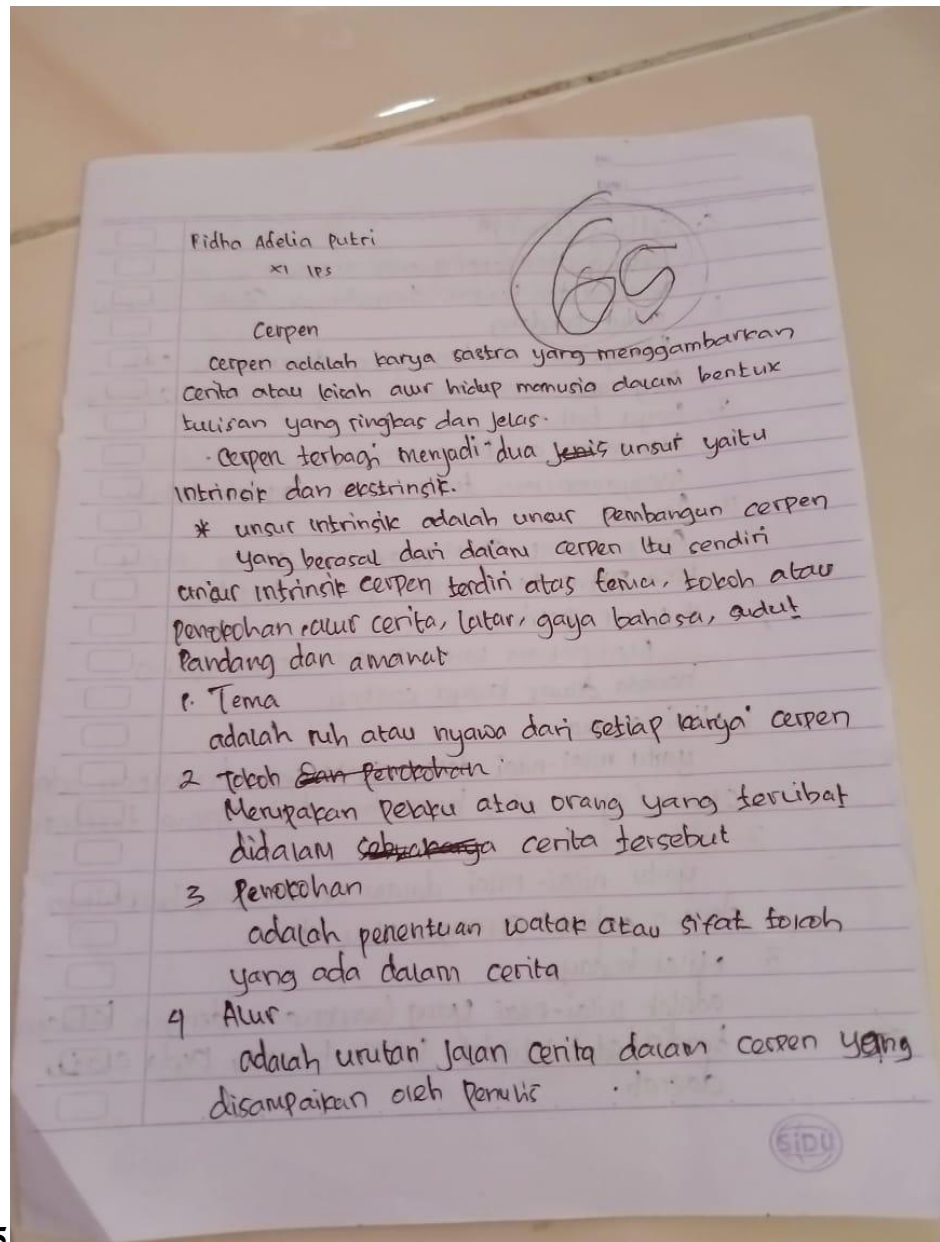 Ridha Adelia Putri
XI IPS
65
Cerpen
cerpen adalah karya sastra yang menggambarkan
cerita atau kisah alur hidup manusia dalam bentuk
tulisan yang ringkas dan jelas.
. cerpen terbagi menjadi dua jenis unsur yaitu
intrinsik dan ekstrinsik.
* unsur intrinsik adalah unsur pembangun cerpen
yang berasal dari dalam cerpen itu sendiri
unsur intrinsik cerpen terdiri atas tema, tokoh atau
penokohan, alur cerita, latar, gaya bahasa, sudut
Pandang dan amanat
1. Tema
adalah ruh atau nyawa dari setiap karya cerpen
2 tokoh dan Penokohan
Merupakan pelaku atau orang yang terlibat
didalam cerita tersebut
3 Penokohan
adalah penentuan watak atau sifat tokoh
yang ada dalam cerita
4 Alur
adalah urutan jalan cerita dalam cerpen yang
disampaikan oleh penulis
SIDU
5